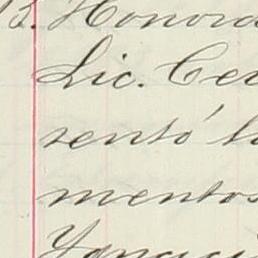 13. Honora
Lic. Ce
sentó l
mentos
Ygnaci